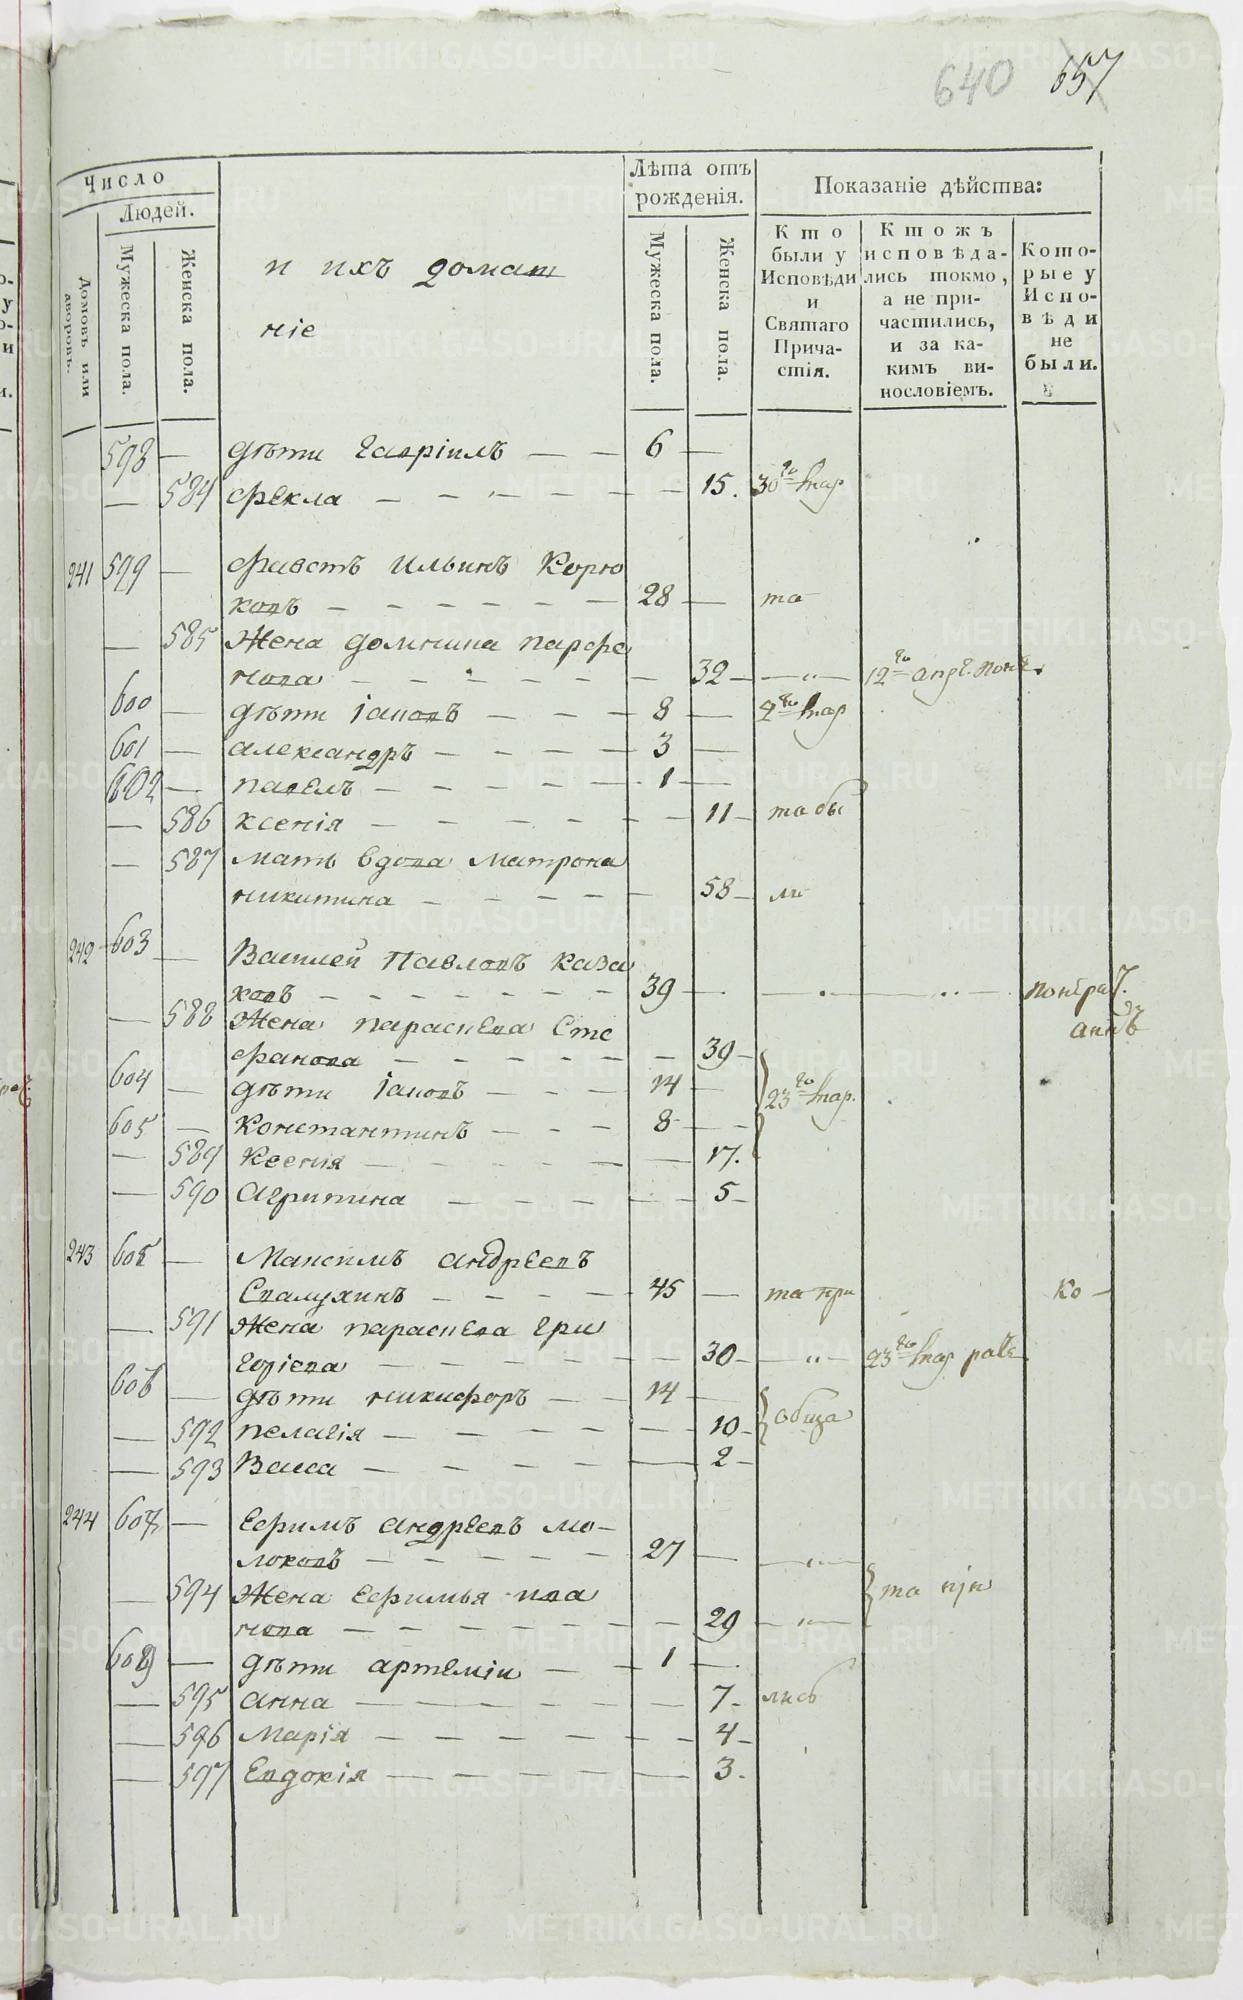 640 657
Число
Людей.
Домовъ или дворовъ.
Мужеска пола.
Женска пола.
и ихъ домаш
ніе
Лѣта отъ рожденія.
Мужеска пола.
Женска пола.
Показаніе дѣйства:
Кто были у Исповѣди и Святаго Причастія.
Ктожъ исповѣдались токмо, а не причастились, и за какимъ винословіемъ.
Которые у Исповѣди не были.
598 — дѣти Гавріилъ — — 6 —
— 584 Фекла — — — — — — 15. 30го Мар
241 599 — Фавстъ Ильинъ Корю
ковъ — — — — — — 28 — та
— 585 Жена домнина парфе
нова — — — — — — 32 — „ — 12го
600 — дѣти Іаковъ — — — 8 — 2го Мар
601 — александръ — — — — 3 —
602 — павелъ — — — — — 1 —
— 586 ксенія — — — — — — 11 — та бы
— 587 мать вдова Матрона
никитина — — — — — 58 — ли
242 603 — Василей Павловъ Каза
ковъ — — — — — — — 39 — — „ —
— 588 Жена параскева Сте
фанова — — — — — — 39 —
604 — дѣти Іаковъ — — — 14 — 23го Мар.
605 — Константинъ — — — 8 — —
— 589 Ксенія — — — — — — 17.
— 590 Агрипина — — — — — 5 —
243 605 — Максимъ андреевъ
Свалухинъ — — — — 45 — та при ко —
— 591 Жена параскева гри
горіева — — — — — — 30 — — „ — 23го Мар
606 — дѣти никифоръ — — 14 —
— 592 пелагія — — — — — 10 —
— 593 Васса — — — — — 2 —
244 607 — Ефимъ андреевъ мо-
локовъ — — — — — 27 — — „ —
— 594 Жена Ефимья ива
нова — — — — — — — 29 — „ — та при
608 — дѣти артеміи — — 1 —
— 595 анна — — — — — 7 — лись
— 596 Марія — — — — — — 4 —
— 597 Евдокія — — — — — 3.
METRIKI.GASO-URAL.RU